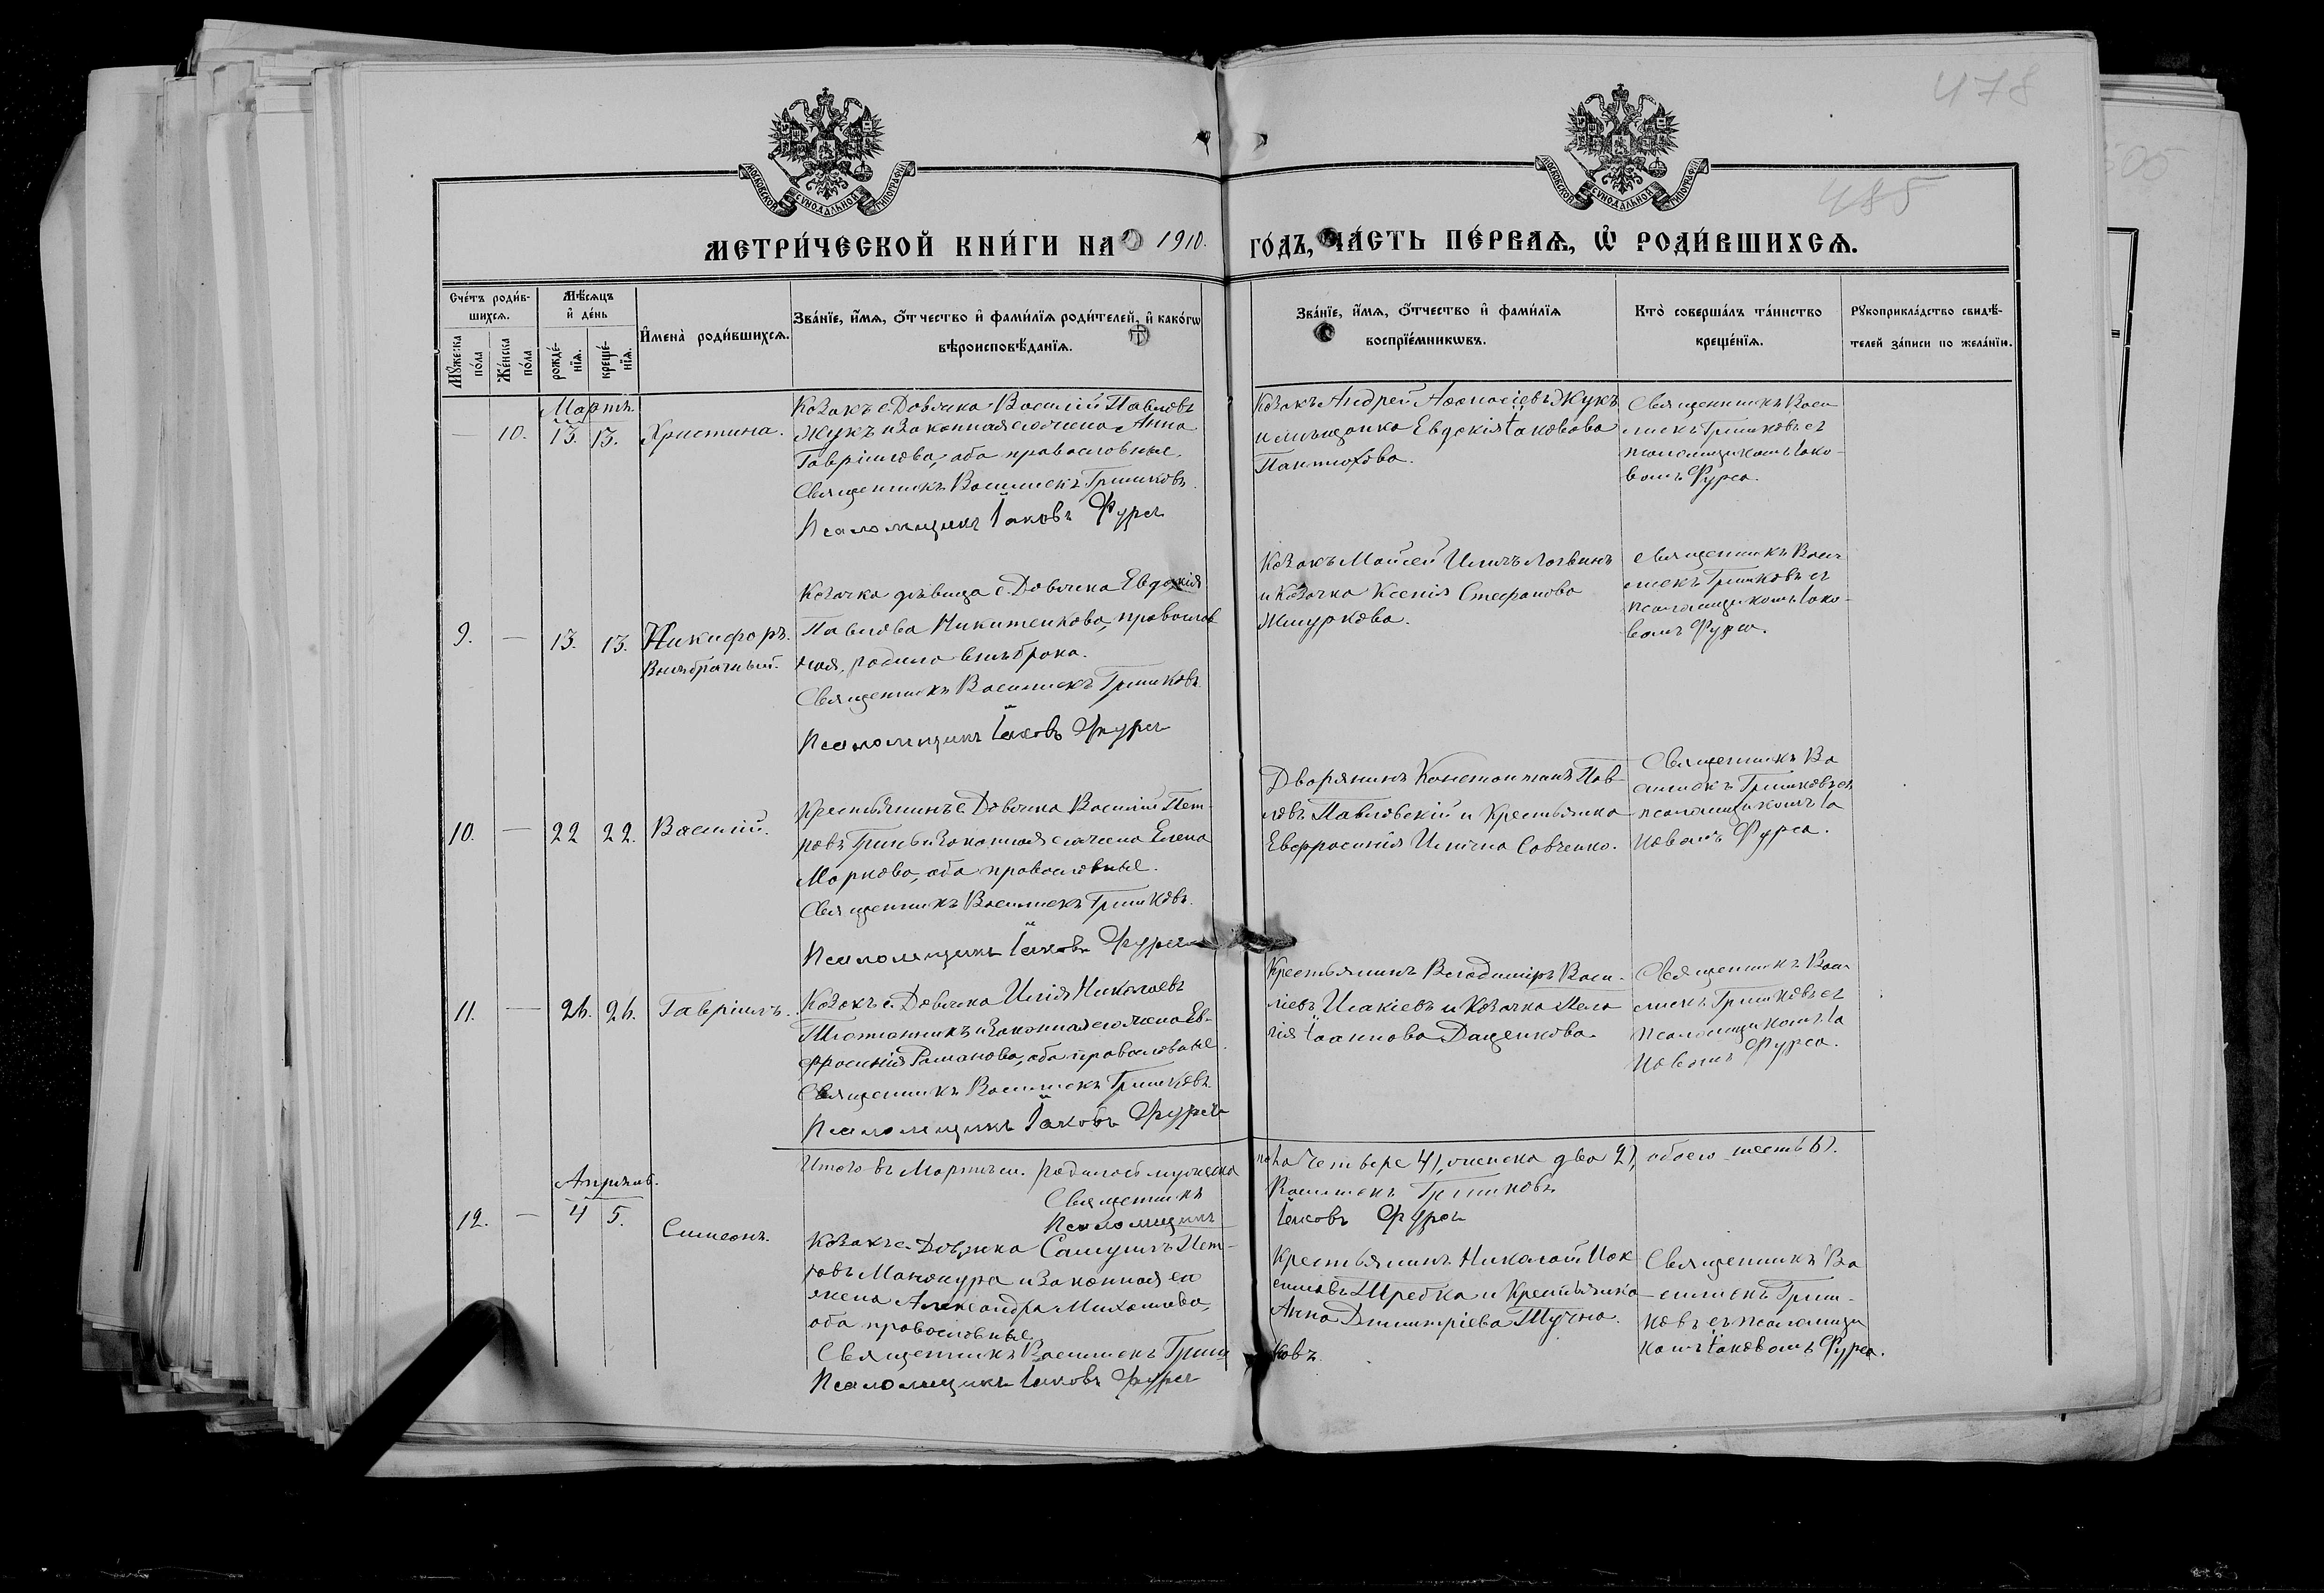 478
485
505
МОСКОВСКОЙ СѴНОДАЛЬНОЙ ТИПОГРАФІИ
МОСКОВСКОЙ СѴНОДАЛЬНОЙ ТИПОГРАФІИ
МЕТРИ́ЧЕСКОЙ КНИ́ГИ НА 1910.
ГО́ДЪ, ЧА́СТЬ ПЕ́РВАѦ, Ѡ҆ РОДИ́ВШИХСѦ.
Сче́тъ роди́в-
шихсѧ.
Мѣ́сѧцъ
и҆ де́нь
Мꙋ́жеска
по́ла
Же́нска
по́ла
рожде́-
нїѧ.
креще́-
нїѧ.
И҆мена̀ роди́вшихсѧ.
Зва́нїе, и҆́мѧ, ѻ҆́тчество и҆ фами́лїѧ роди́телей, и҆ како́гѡ
вѣроисповѣ́данїѧ.
Зва́нїе, и҆́мѧ, ѻ҆́тчество и҆ фами́лїѧ
воспрїе́мникѡвъ.
Кто̀ соверша́лъ та́инство
креще́нїѧ.
Рꙋкоприкла́дство свидѣ́-
телей за́писи по жела́нїю.
Мартъ
— 10. 13. 13. Христина.
Козакъ с. Довжика Василій Павловъ
Жукъ и законная его жена Анна
Гавріилова, оба православные.
Священникъ Василискъ Гришковъ.
Псаломщикъ Іаковъ Фурса
Козакъ Андрей Аѳанасіевъ Жукъ
и мѣщанка Евдокія Іаковова
Пантюхова.
Священникъ Васи
лискъ Гришковъ съ
псаломщикомъ Іако-
вомъ Фурса.
9. — 13. 13. Никифоръ.
Внѣбрачный.
Козачка дѣвица с. Довжика Евдокія
Павлова Никитенкова, православ
ная, родила внѣ брака.
Священникъ Василискъ Гришковъ.
Псаломщикъ Іаковъ Фурса
Козакъ Моисей Иличъ Логвинъ
и козачка Ксенія Стефанова
Жмуркова.
Священникъ Васи
лискъ Гришковъ съ
псаломщикомъ Іако-
вомъ Фурса.
10. — 22 22. Василій.
Крестьянинъ с. Довжика Василій Пет-
ровъ Гринь и законная его жена Елена
Маркова, оба православные.
Священникъ Василискъ Гришковъ.
Псаломщикъ Іаковъ Фурса
Дворянинъ Константинъ Пав-
ловъ Павловскій и Крестьянка
Евфросинія Ильина Савченко.
Священникъ Ва
силискъ Гришковъ съ
псаломщикомъ Іа
ковомъ Фурса.
11. — 26. 26. Гавріилъ.
Козакъ с. Довжика Илія Николаевъ
Плотникъ и законная его жена Ев-
фросинія Романова, оба православные.
Священникъ Василискъ Гришковъ.
Псаломщикъ Іаковъ Фурса
Крестьянинъ Владиміръ Васи-
ліевъ Исакіевъ и Козачка Пела
гія Іоаннова Даценкова.
Священникъ Васи
лискъ Гришковъ съ
псаломщикомъ Іа
ковомъ Фурса.
Итого въ Мартѣ м. родилось мужеска
пола четыре 4), женска два 2), обоего шесть 6).
Священникъ Василискъ Гришковъ
Псаломщикъ Іаковъ Фурса
Апрѣль.
12. — 4 5. Симеонъ.
Козакъ с. Довжика Самуилъ Пет-
ровъ Манокура и законная его
жена Александра Михаилова,
оба православные.
Священникъ Василискъ Гриш
ковъ.
Псаломщикъ Іаковъ Фурса
Крестьянинъ Николай
Шредка и Крестьянка
Анна Димитріева
Священникъ Ва
силискъ Гриш-
ковъ съ псаломщи
комъ Іаковомъ Фурса.